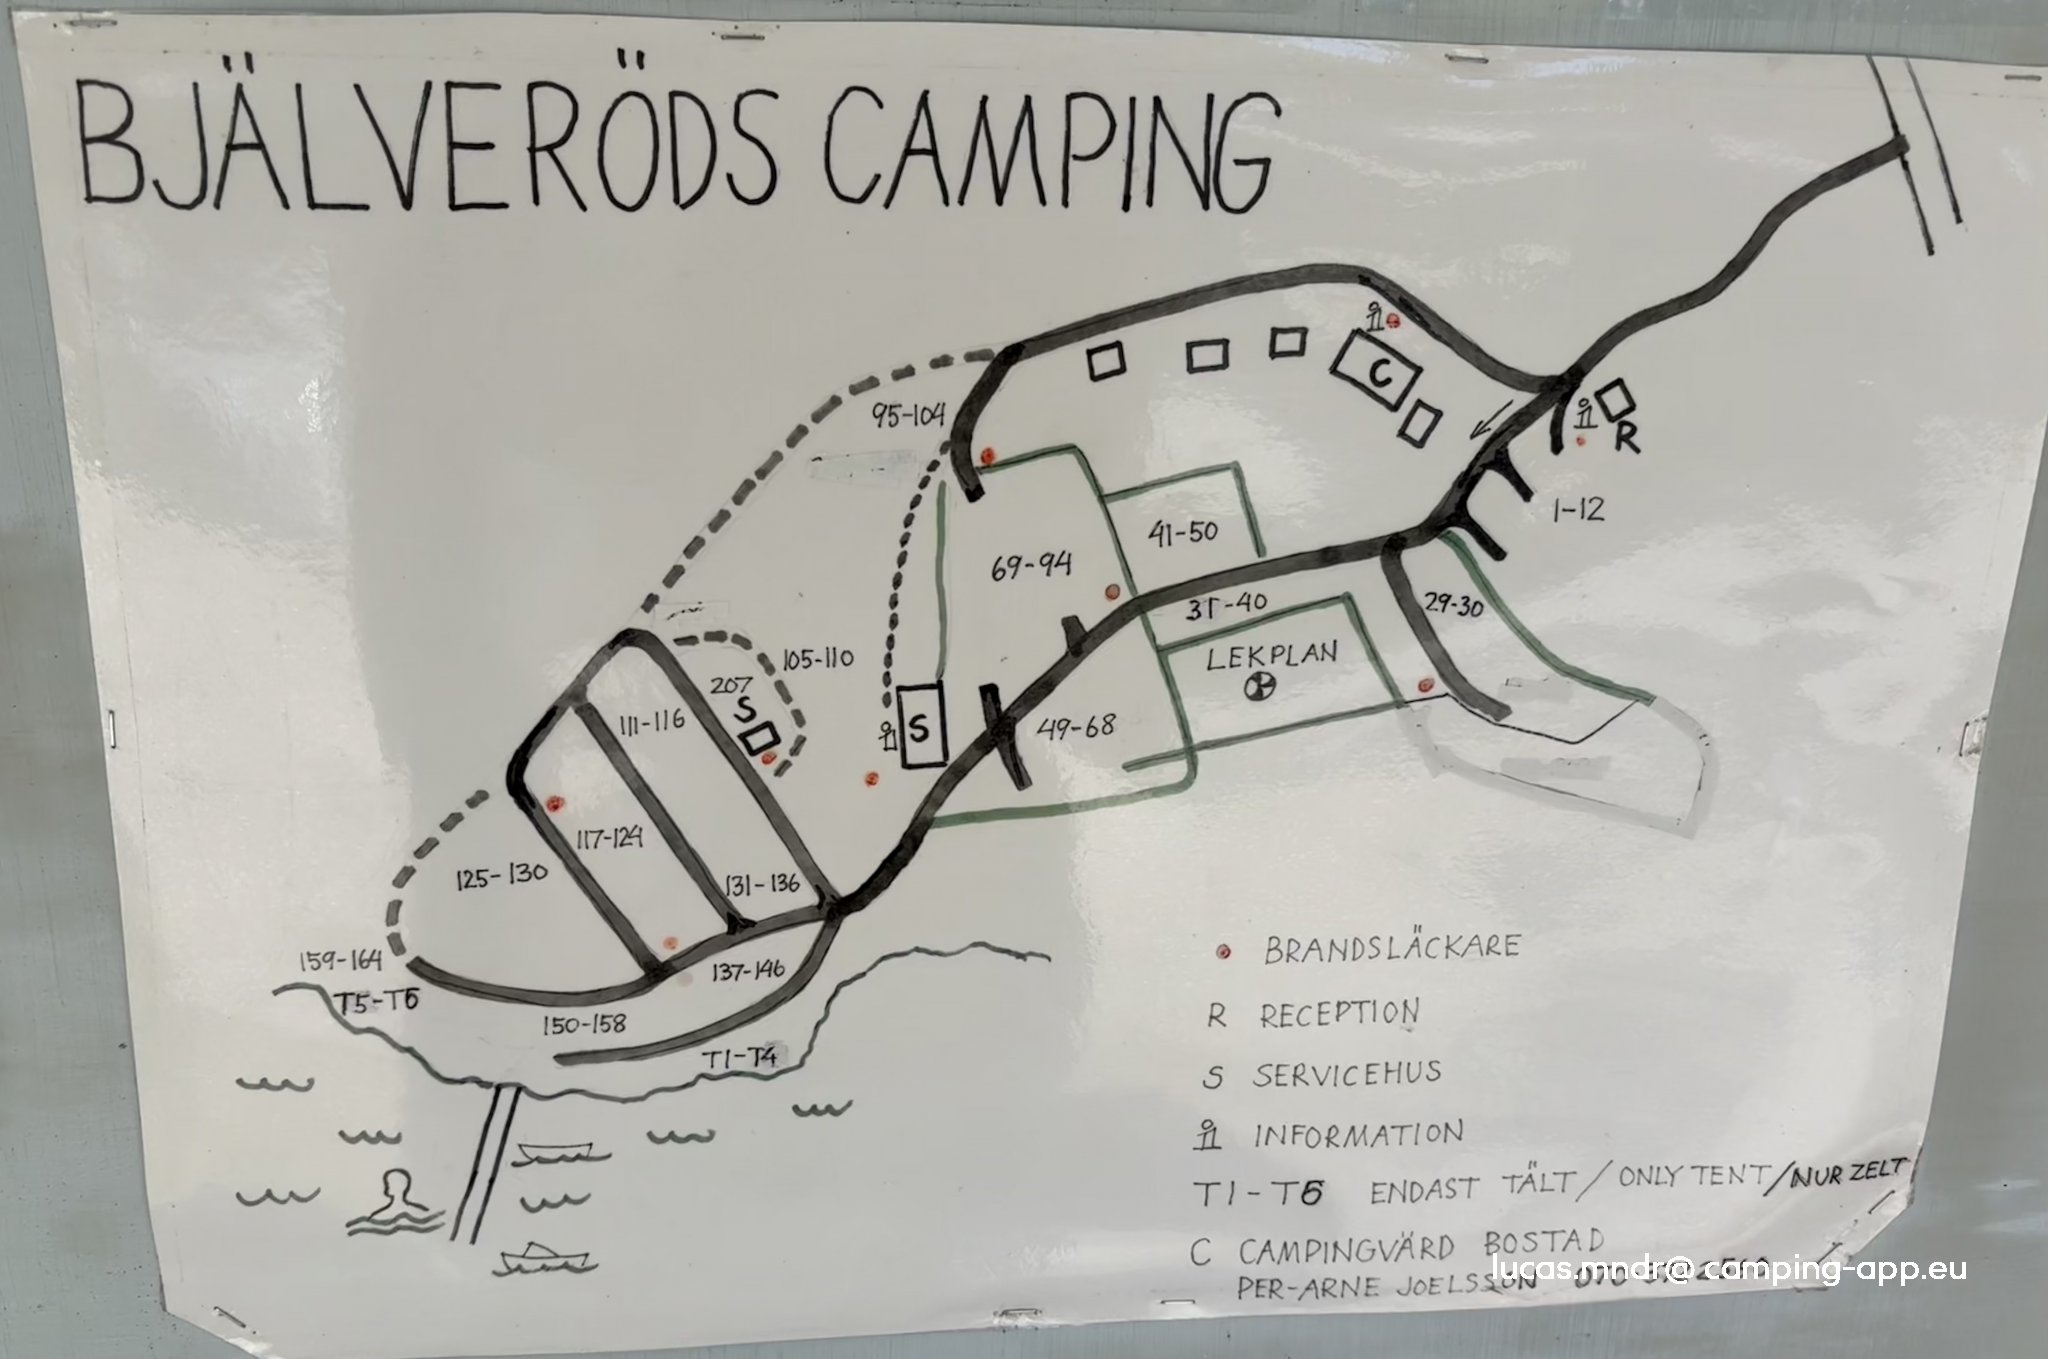 BJÄLVERÖDS CAMPING
C
R
95-104
1-12
41-50
69-94
31-40
29-30
LEKPLAN
105-110
207
S
111-116
S
49-68
117-124
125-130
131-136
159-164
137-146
T5-T6
150-158
T1-T4
BRANDSLÄCKARE
R RECEPTION
S SERVICEHUS
INFORMATION
T1-T6 ENDAST TÄLT/ONLY TENT/NUR ZELT
C CAMPINGVÄRD BOSTAD
PER-ARNE JOELSSON
lucas.mndr@camping-app.eu